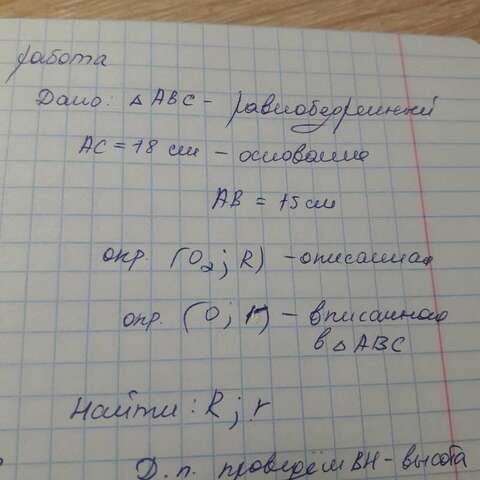 работа
Дано: △ABC - равнобедренный
AC = 18 см - основание
AB = 15 см
окр. (O₂; R) - описанная
окр. (O; r) - вписанная
в △ABC
Найти: R; r
Д.п. проведём BH - высота